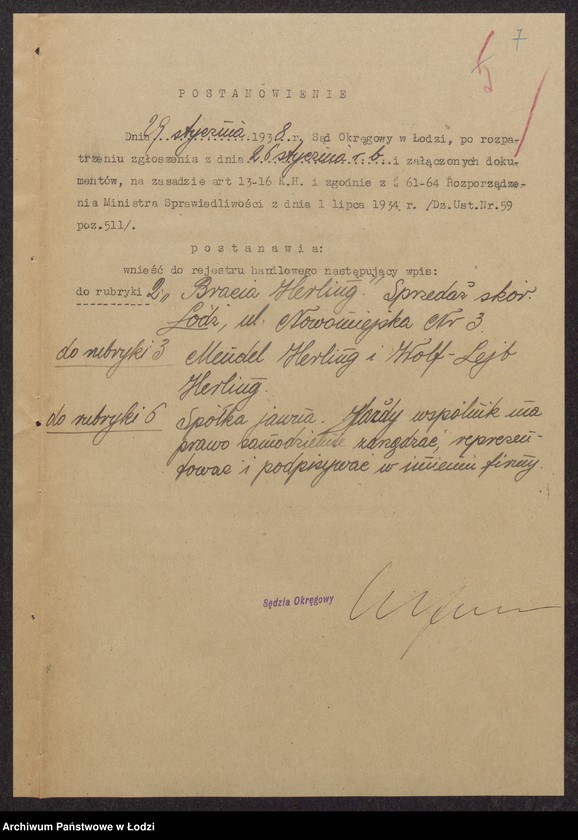 7
POSTANOWIENIE
Dnia 29 stycznia 1938 r. Sąd Okręgowy w Łodzi, po rozpa-
trzeniu zgłoszenia z dnia 26 stycznia r. b. i załączonych doku-
mentów, na zasadzie art 13-16 K.H. i zgodnie z § 61-64 Rozporządze-
nia Ministra Sprawiedliwości z dnia 1 lipca 1934 r. /Dz.Ust.Nr.59
poz.511/.
postanawia:
wnieść do rejestru handlowego następujący wpis:
do rubryki 2: „Bracia Herling." Sprzedaż skór.
Łódź, ul. Nowomiejska Nr 3.
do rubryki 3 Mendel Herling i Wolf-Lejb
Herling.
do rubryki 6 Spółka jawna. Każdy wspólnik ma
prawo samodzielnie zarządzać, reprezen-
tować i podpisywać w imieniu firmy.
Sędzia Okręgowy
Archiwum Państwowe w Łodzi